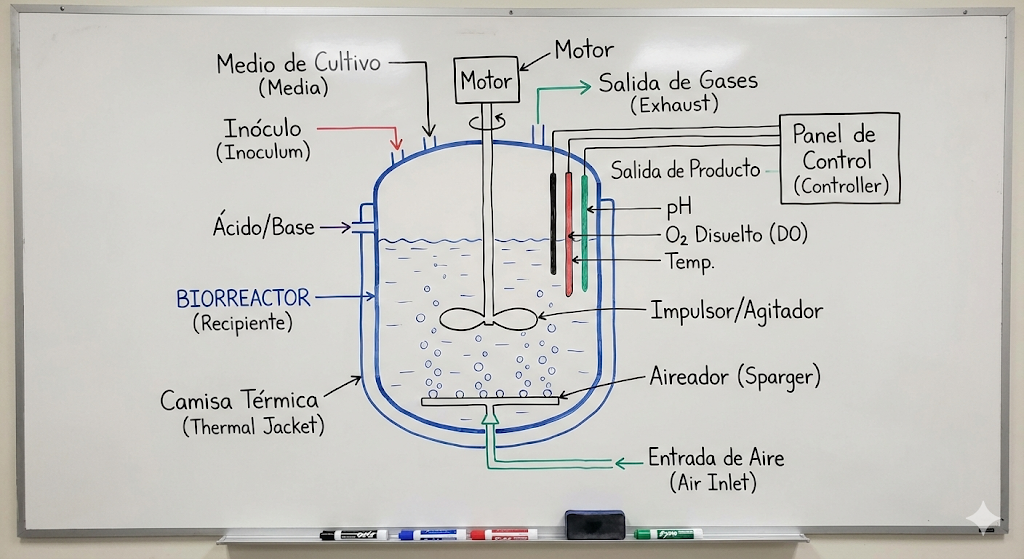 Medio de Cultivo
(Media)
Motor
Motor
Salida de Gases
(Exhaust)
Inóculo
(Inoculum)
Panel de
Control
(Controller)
Salida de Producto
pH
Ácido/Base
O₂ Disuelto (DO)
Temp.
BIORREACTOR
(Recipiente)
Impulsor/Agitador
Aireador (Sparger)
Camisa Térmica
(Thermal Jacket)
Entrada de Aire
(Air Inlet)